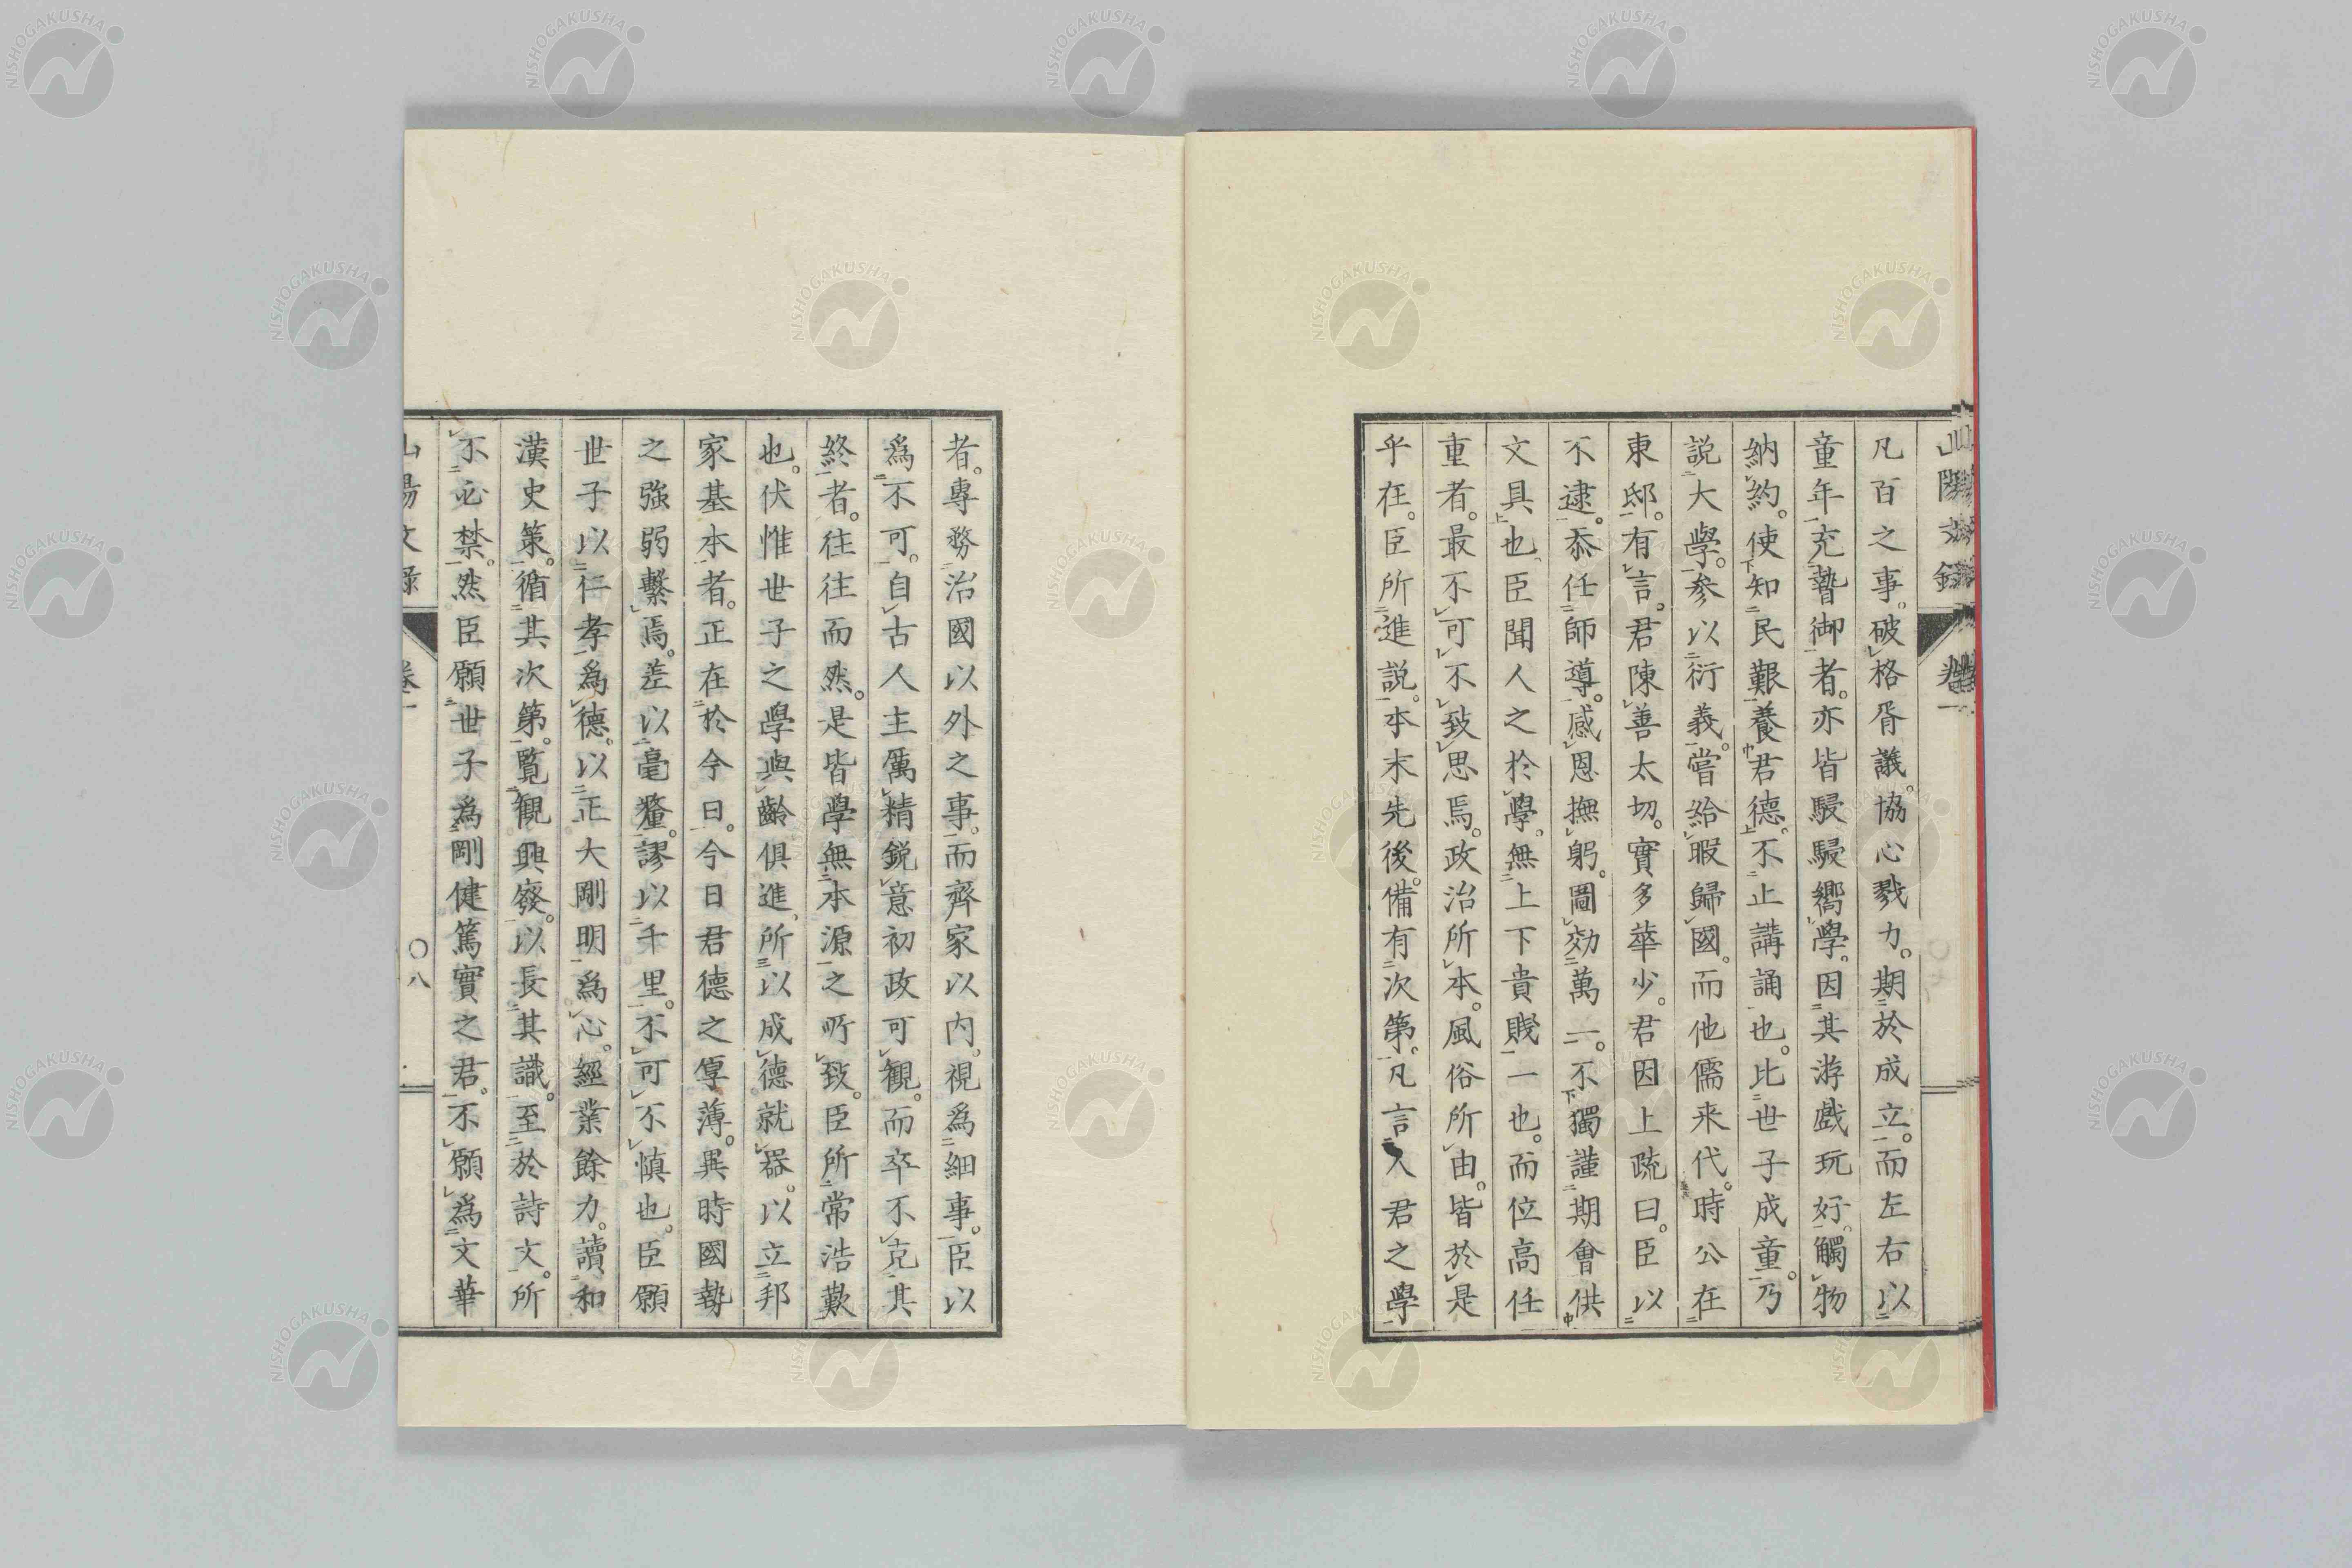 凡百之事。破格胥議。協心戮力。期於成立。而左右以
童年充暬御者。亦皆駸駸嚮學。因其游戲玩好。觸物
納約。使知民艱養君德。不止講誦也。比世子成童。乃
説大學。参以衍義。嘗給暇歸國。而他儒来代。時公在
東邸。有言。君陳善太切。實多華少。君因上疏曰。臣以
不逮。忝任師導。感恩撫躬。圖效萬一。不獨謹期會供
文具也。臣聞人之於學。無上下貴賤一也。而位高任
重者。最不可不致思焉。政治所本。風俗所由。皆於是
乎在。臣所進説。本末先後。備有次第。凡言人君之學
者。專務治國以外之事。而齊家以内。視爲細事。臣以
爲不可。自古人主厲精鋭意初政可觀。而卒不克其
終者。往往而然。是皆學無本源之所致。臣所常浩歎
也。伏惟世子之學與齡俱進。所以成德就器。以立邦
家基本者。正在於今日。今日君德之厚薄。異時國勢
之強弱繫焉。差以毫釐。謬以千里。不可不慎也。臣願
世子以仁孝爲德。以正大剛明爲心。經業餘力。讀和
漢史策。循其次第。覽觀興廢。以長其識。至於詩文。所
不必禁。然臣願世子爲剛健篤實之君。不願爲文華
山陽文録 卷一 〇八
NISHOGAKUSHA